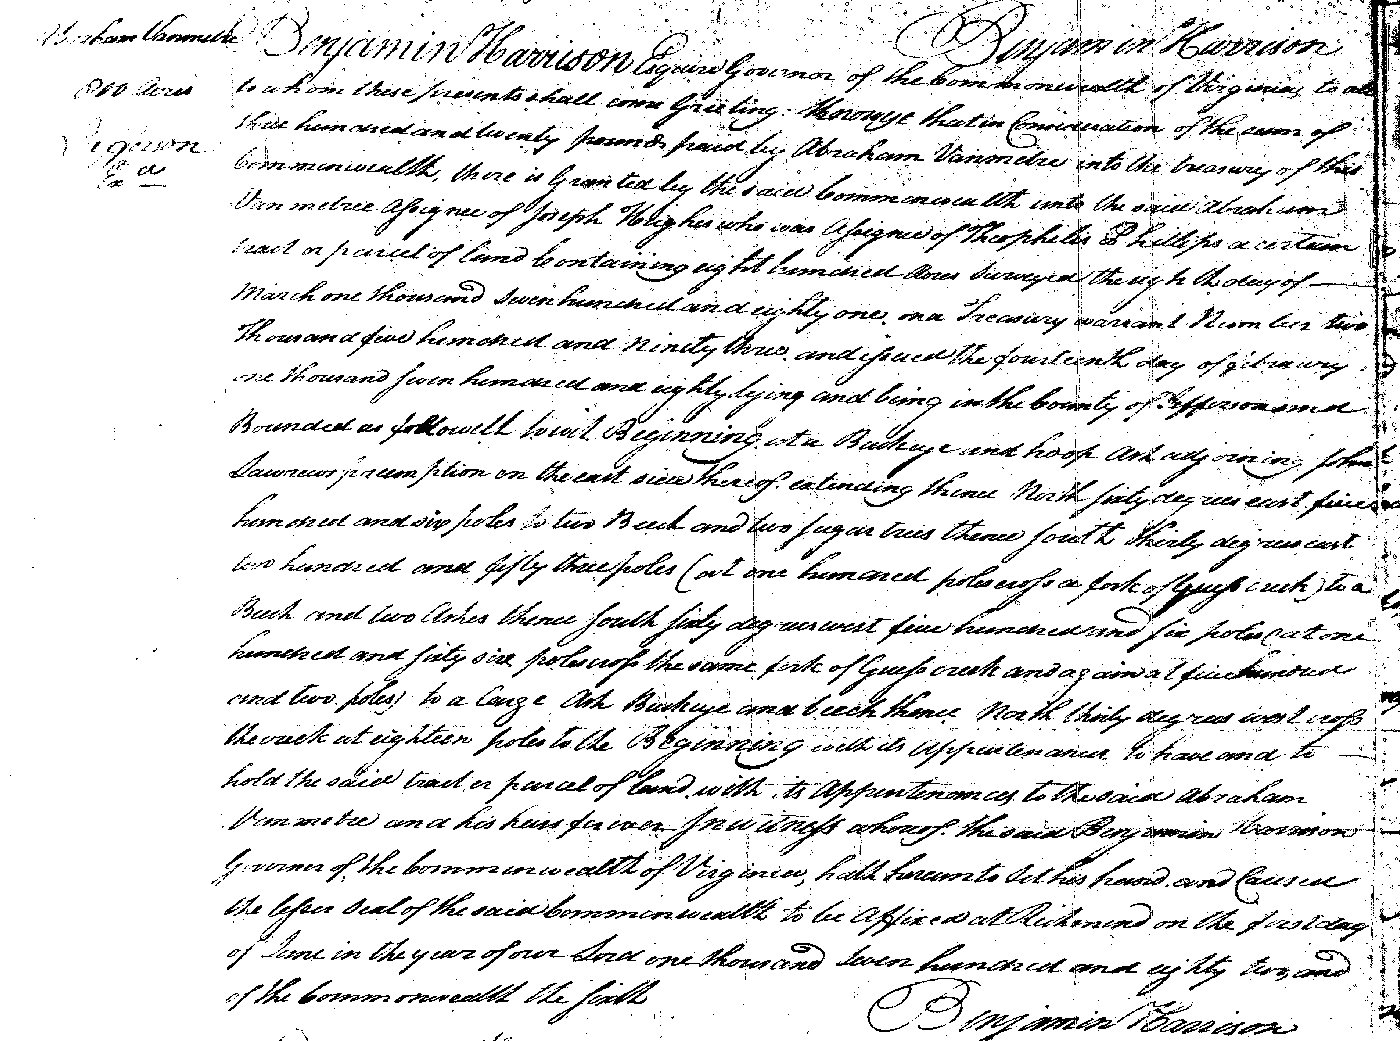 Abraham Vanmetre
800 Acres
Benjamin Harrison
Benjamin Harrison Esquire Governor of the Commonwealth of Virginia, to all
to whom these presents shall come Greeting. Know ye that in Consideration of the sum of
three hundred and twenty pounds paid by Abraham Vanmetre into the treasury of this
Commonwealth, there is Granted by the said Commonwealth unto the said Abraham
Vanmetree Assignee of Joseph Hughes who was Assignee of Theophelis Phillips a certain
tract or parcel of land Containing eight hundred Acres Surveyed the eigh th day of
March one thousand Seven hundred and eighty one, on a Treasury warrant Number two
Thousand five hundred and ninety three, and issued the fourteenth day of febrawry
one thousand seven hundred and eighty, lying and being in the County of Jefferson and
Bounded as followeth to wit Beginning at a Buckeye and hoop Ash adjoining John
preemption on the east side thereof. extending thence North sixty degrees east five
hundred and six poles to two Beech and two sugar trees thence south thirty degrees east
two hundred and fifty three poles (at one hundred poles cross a fork of Guess creek) to a
Beech and two Ashes thence South sixty degrees west five hundred and six poles (at one
hundred and sixty six poles cross the same fork of Guess creek and again at five hundred
and two poles) to a Large Ash Buckeye and beech thence North thirty degrees west cross
the creek at eighteen poles to the Beginning with its Appurtenances to have and to
hold the said tract or parcel of land with its Appurtenances to the said Abraham
Vanmetre and his heirs forever In witness whereof. the said Benjamin Harrison
Governor of the Commonwealth of Virginia, hath hereunto Set his hand and Caused
the lesser Seal of the said Commonwealth to be Affixed at Richmond on the first day
of June in the year of our Lord one thousand Seven hundred and eighty two, and
of the Commonwealth the sixth
Benjamin Harrison